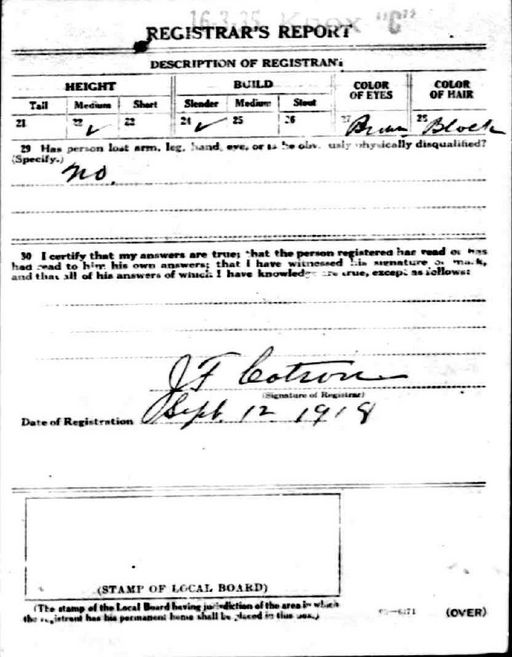 16-3-35 Knox "C"
REGISTRAR'S REPORT
DESCRIPTION OF REGISTRANT
HEIGHT BUILD COLOR OF EYES COLOR OF HAIR
Tall Medium Short Slender Medium Stout
21 22 ✓ 23 24 ✓ 25 26 27 Brown 28 Black
29 Has person lost arm, leg, hand, eye, or is he obviously physically disqualified?
(Specify.) no.
30 I certify that my answers are true; that the person registered has read or has
had read to him his own answers; that I have witnessed his signature or mark,
and that all of his answers of which I have knowledge are true, except as follows:
J F
(Signature of Registrar)
Date of Registration Sept. 12 1918
(STAMP OF LOCAL BOARD)
(The stamp of the Local Board having jurisdiction of the area in which
the registrant has his permanent home shall be placed in this box.)
(OVER)